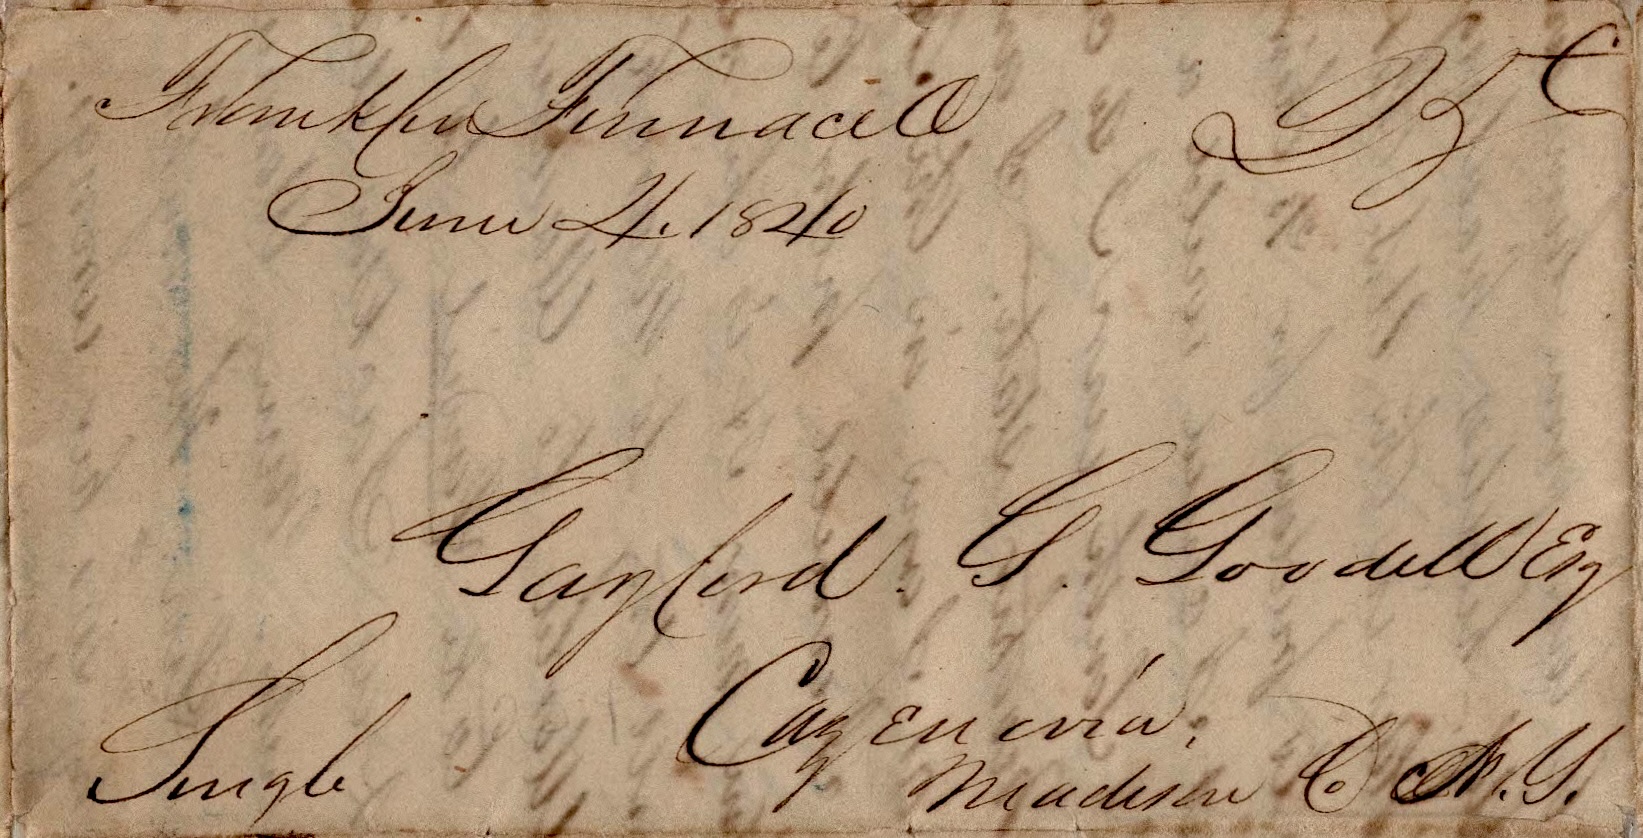 Franklin Furnace O 25
June 4. 1840
Gaylord. G. Goodell Esq
Cazenovia,
Single Madison Co N.Y.